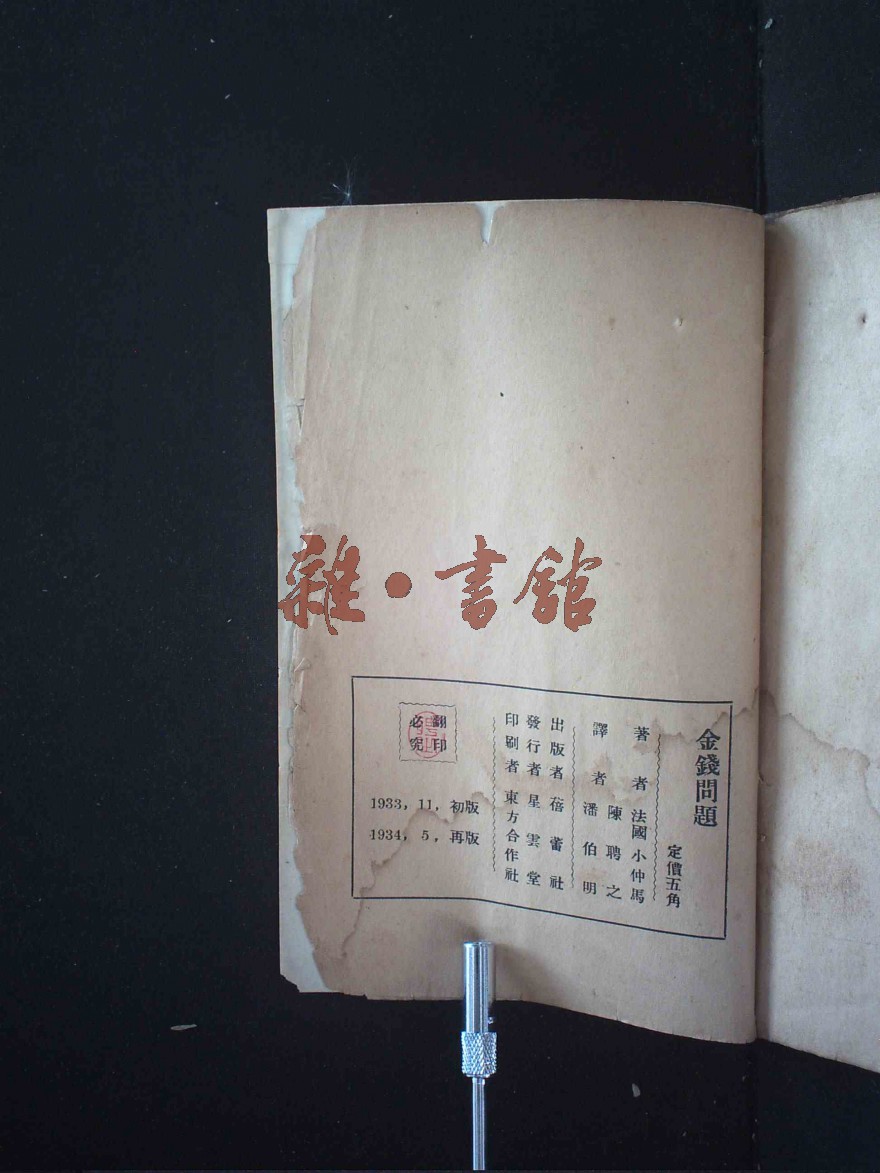 雜·書館
金錢問題
定價五角
著者 法國小仲馬
譯者 陳聘之
潘伯明
出版者 蓓蕾社
發行者 星雲堂
印刷者 東方合作社
翻印
必究
1933, 11, 初版
1934, 5, 再版